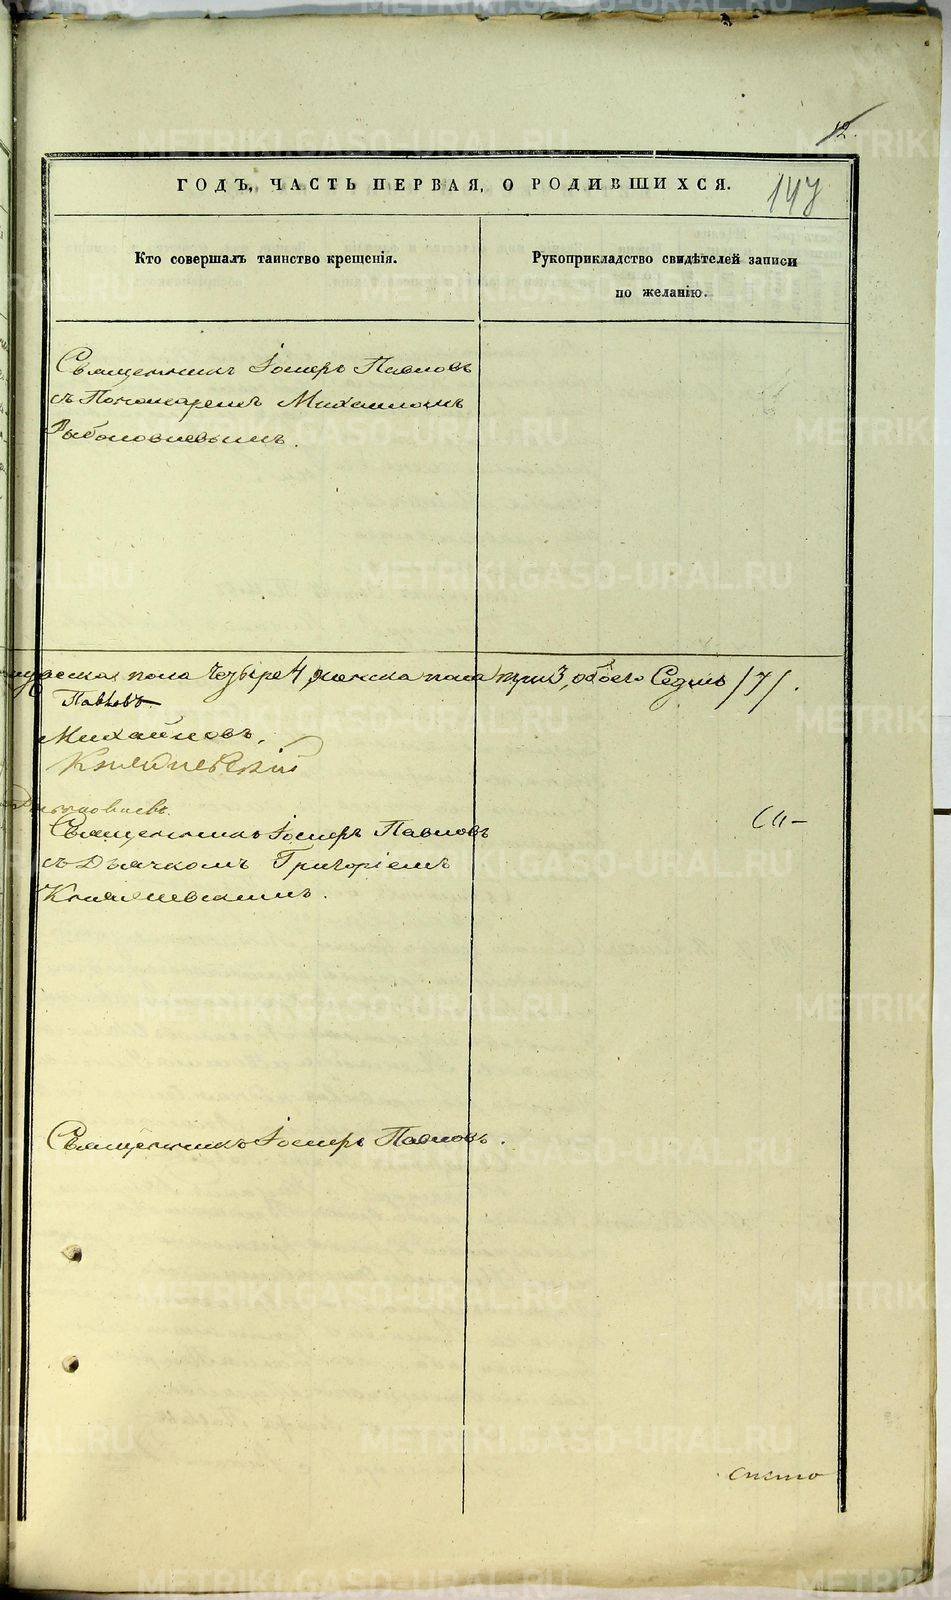 12.
ГОДЪ, ЧАСТЬ ПЕРВАЯ, О РОДИВШИХСЯ.
147
Кто совершалъ таинство крещенія.
Рукоприкладство свидѣтелей записи
по желанію.
Священникъ Іосифъ Павловъ
съ Пономаремъ Михаиломъ
мужеска пола четыре 4, женска пола три 3, обоего Седмь /7/.
Павловъ
Михайловъ.
Священникъ Іосифъ Павловъ
съ Дьячкомъ Григоріемъ
Священникъ Іосифъ Павловъ.
METRIKI.GASO-URAL.RU